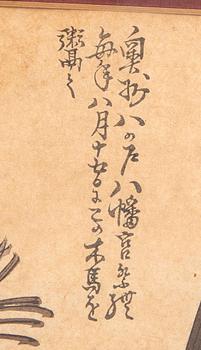 奥州八の戸八幡宮祭禮
毎年八月十五日にこの木馬を